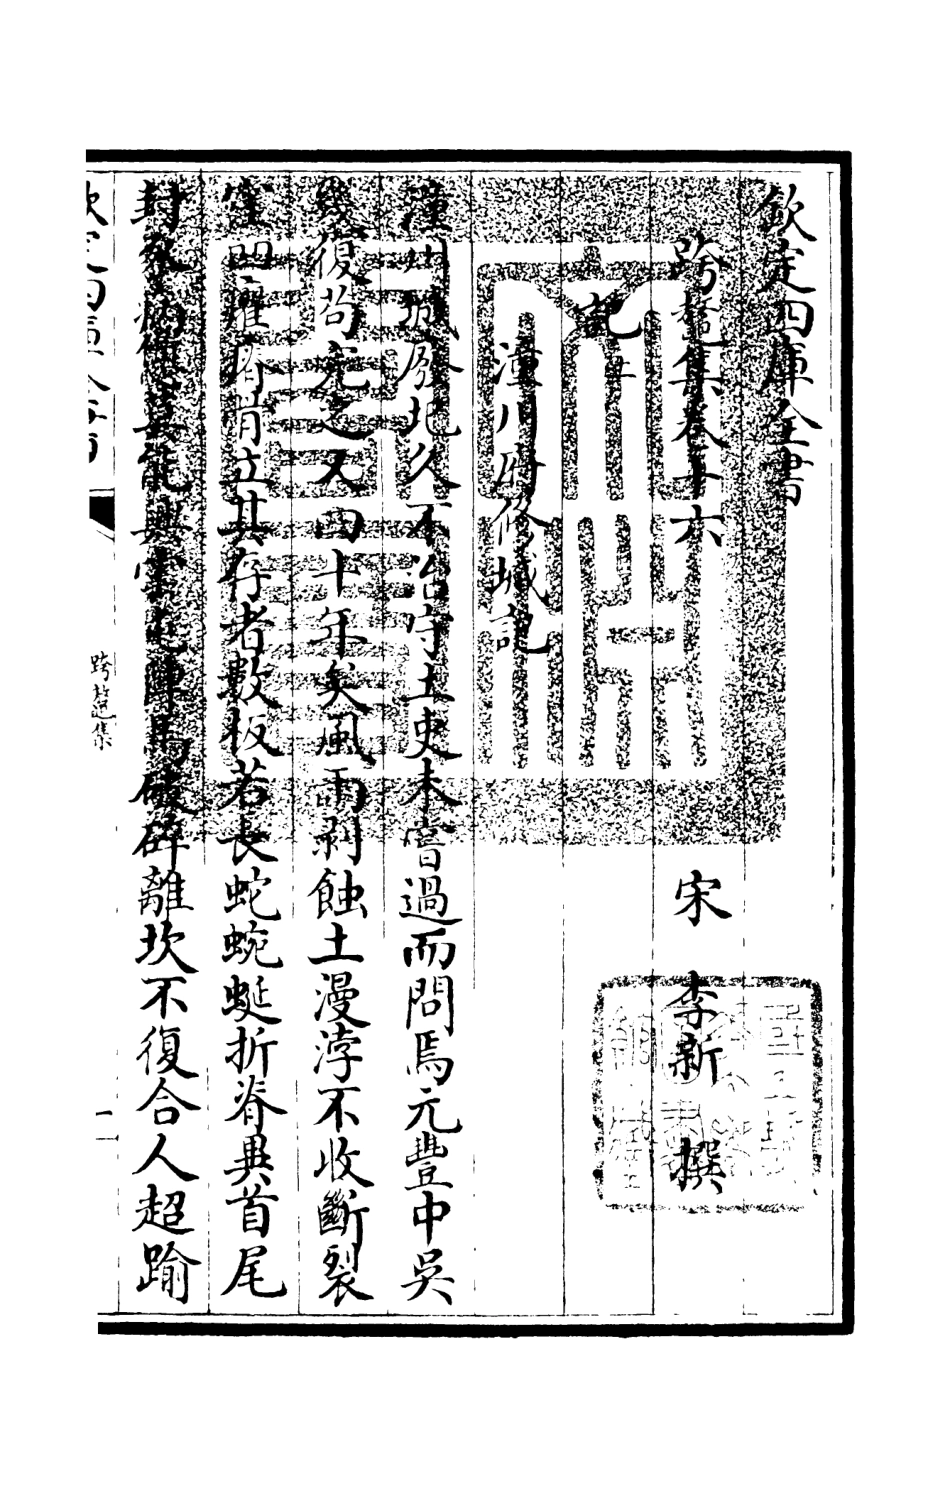 欽定四庫全書
跨鼇集卷十六 宋 李新 撰
記
潼川府修城記
潼州城圮久不治守土吏未嘗過而問焉元豐中吳
幾復苟完之又四十年矣風雨剥蝕土漫浡不收斷裂
立其存者數板若長蛇蜿蜒折脊異首尾
封豕病憊莫能興陣馬破碎離坎不復合人超踰
欽定四庫全書
跨鼇集
一